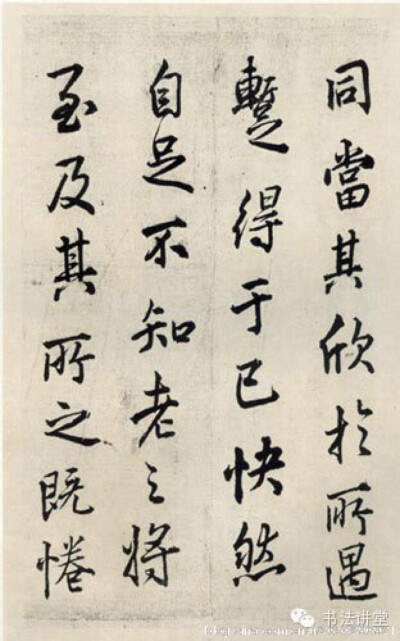 同當其欣於所遇
蹔得于己快然
自足不知老之將
至及其所之既惓
书法讲堂